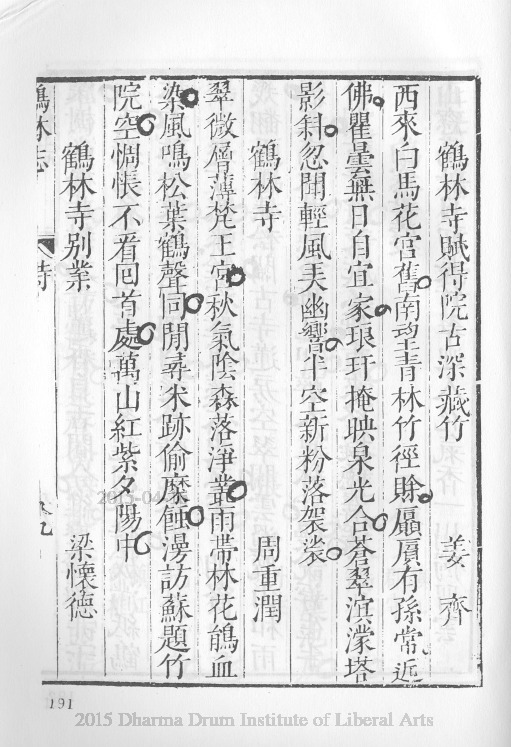 鶴林寺賦得院古深藏竹 姜齊
西來白馬花宮舊南望青林竹徑賒贔屭有孫常近
佛瞿曇無日自宜家琅玕掩映泉光合蒼翠濵濛塔
影斜忽聞輕風天幽響半空新粉落袈裟
鶴林寺 周重潤
翠微層薄梵王宮秋氣陰森落淨叢雨帶林花鵑血
染風鳴松葉鶴聲同閒尋米跡偷糜蝕漫訪蘇題竹
院空惆悵不看回首處萬山紅紫夕陽中
鶴林寺別業 梁懷德
鶴林志 詩
191
2015 Dharma Drum Institute of Liberal Arts